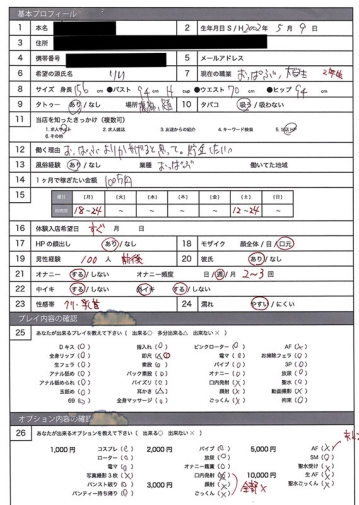 基本プロフィール
1 本名 2 生年月日 S / H 2002年 5月 9日
3 住所
4 携帯番号 5 メールアドレス
6 希望の源氏名 りり 7 現在の職業 おっぱぶ, 大学生 2年生
8 サイズ 身長 156 cm ●バスト 94 cm H cup ●ウエスト 70 cm ●ヒップ 94 cm
9 タトゥー あり / なし 場所 10 タバコ 吸う / 吸わない
11 当店を知ったきっかけ（複数可）
1.求人サイト 2.求人雑誌 3.友達からの紹介 4.キーワード検索 5.当店HP
6.その他
12 働く理由
13 風俗経験 あり / なし 業種 おっぱぶ 働いてた地域
14 1ヶ月で稼ぎたい金額 100万円
15 曜日 [月] [火] [水] [木] [金] [土] [日]
18-24 ～ ～ ～ ～ 12-24 ～
16 体験入店希望日 すぐ 月 日
17 HPの顔出し あり / なし 18 モザイク 顔全体 / 目 / 口元
19 男性経験 100 人 前後 20 彼氏 あり / なし
21 オナニー する / しない オナニー頻度 日 / 週 / 月 2～3 回
22 中イキ する / しない 外イキ する / しない
23 性感帯 クリ・乳首 24 濡れ やすい / にくい
プレイ内容の確認
25 あなたが出来るプレイを教えて下さい（ 出来る○ 多分出来る△ 出来ない× ）
Dキス (○) 指入れ (○) ピンクローター (○) AF (×)
全身リップ (○) 即尺 電マ (○) お掃除フェラ (○)
生フェラ (○) 素股 (○) バイブ (○) 3P (○)
アナル舐め (○) バック素股 (○) オナニー (○) 放尿 (○)
アナル舐められ (○) パイズリ (○) 口内発射 (×) 聖水 (○)
玉舐め (○) 耳かき 顔射 (×) 動画撮影 (×)
69 (○) 全身マッサージ (○) ごっくん (×) 拘束 (○)
オプション内容の確認
26 あなたが出来るオプションを教えて下さい（ 出来る○ 出来ない× ）
1,000円 コスプレ (○) 2,000円 バイブ (○) 5,000円 AF (×)
ローター (○) 放尿 (○) SM (○)
電マ (○) オナニー鑑賞 (○) 聖水受け (×)
写真撮影3枚 (×) 口内発射 (×) 10,000円 生AF (×)
パンスト破り (○) 3,000円 顔射 (×) 全部× 聖水ごっくん (×)
パンティー持ち帰り (○) ごっくん (×)